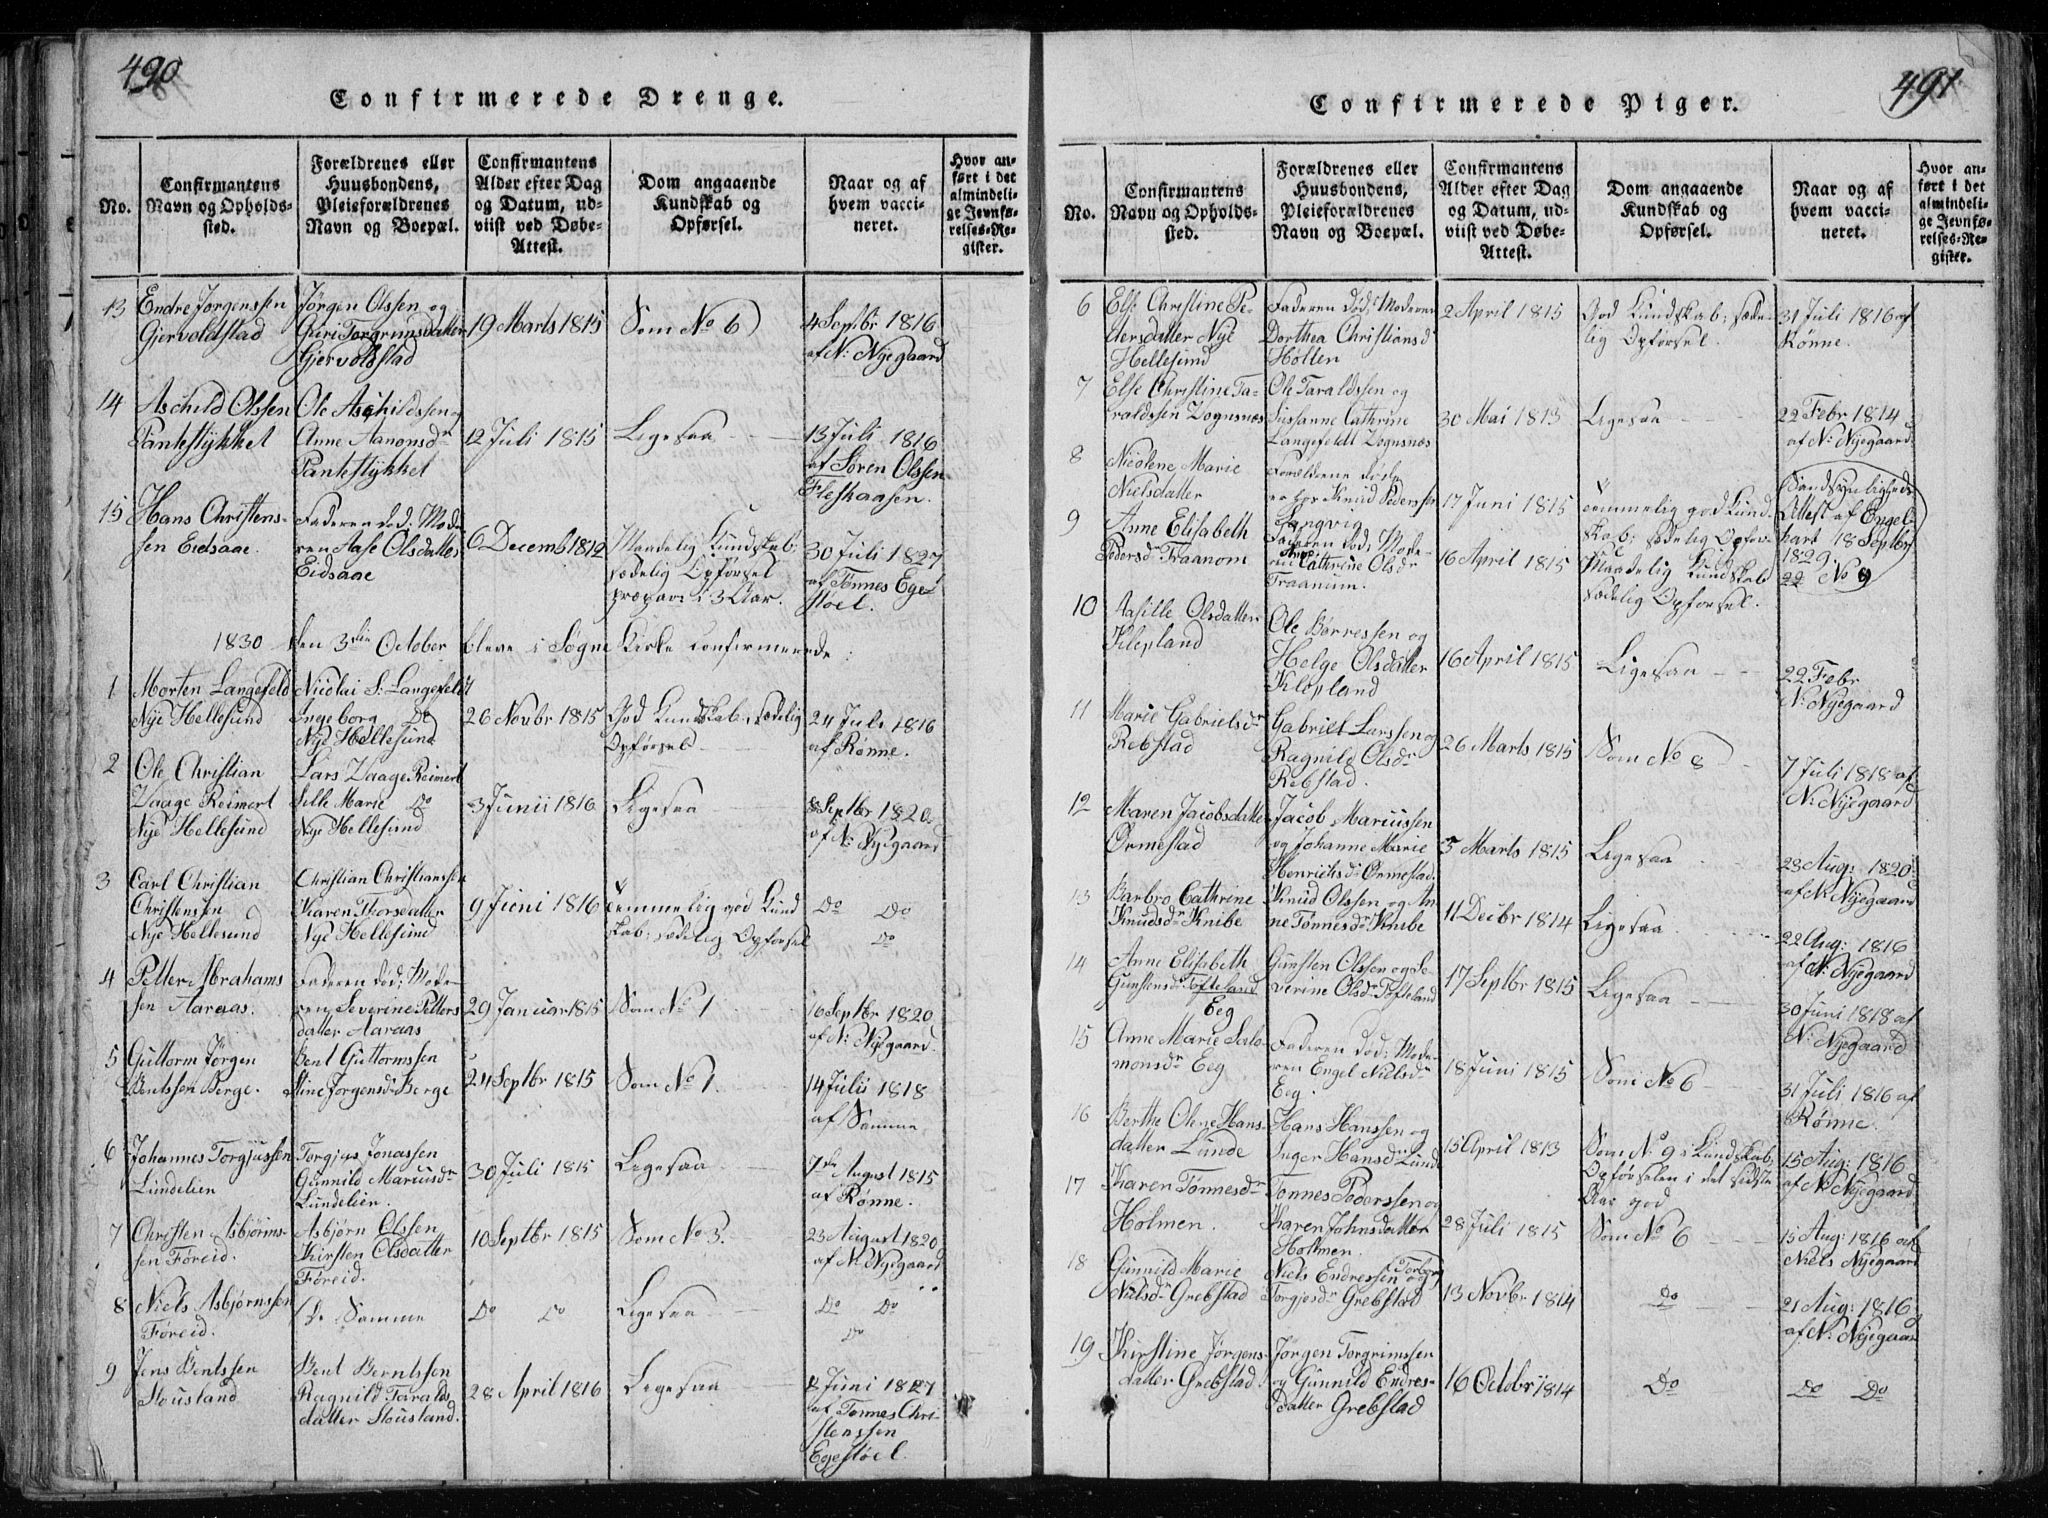 490
Confirmerede Drenge.
No.
Confirmantens
Navn og Opholds-
sted.
Forældrenes eller
Huusbondens,
Pleieforældrenes
Navn og Boepæl.
Confirmantens
Alder efter Dag
og Datum, ud-
viist ved Døbe-
Attest.
Dom angaaende
Kundskab og
Opførsel.
Naar og af
hvem vacci-
neret.
Hvor an-
ført i det
almindeli-
ge Jevnfø-
relses-Re-
gister.
13
Endre Jørgenssen
Gjervoldstad
Jørgen Olssen og
Guri Torgrimsdatter
Gjervoldstad
19 Marts 1815
Som No 6
4 Septbr 1816
af N: Nyegaard
14
Aschild Olssen
Tanteslykket
Ole Aschildssen og
Anne Aanonsdr
Tanteslykket
12 Juli 1815
Ligesaa
13 Juli 1816
af Søren Olssen
Fleskaasen.
15
Hans Christens-
sen Eidsaae.
Faderen død; Mode
ren Aase Olsdatter
Eidsaae
6 Decemb 1812
Maadelig Kundskab;
sædelig Opførsel
præpar: i 3 Aar.
30 Juli 1827
af Tønnes Ege-
støel.
1830 den 3die October bleve i Søgne Kirke confirmerede:
1
Morten Langefeld
Nye Hellesund
Nicolai S: Langefeldt
Ingeborg Do
Nye Hellesund
26 Novbr 1815
God Kundskab; sædelig
Opførsel.
24 Juli 1816
af Rønne.
2
Ole Christian
Vaage Reimert
Nye Hellesund
Lars Vaage Reimert
Sille Marie Do
Nye Hellesund
3 Junii 1816
Ligesaa
8 Septbr 1820
af N: Nyegaard
3
Carl Christian
Christenssen
Nye Hellesund
Christian Christianssen
Karen Thorsdatter
Nye Hellesund
9 Juni 1816
temmelig god Kund
skab; sædelig Opførsel
Do Do
Do
4
Petter Abrahams
sen Aaraas.
Faderen død; Mode-
ren Severine Petters
datter Aaraas
29 Januar 1815
Som No 1
16 Septbr 1820
af N: Nyegaard.
5
Guttorm Jørgen
Bentssen Berge.
Bent Guttormssen
Stine Jørgensdr Berge
24 Septbr 1815
Som No 1.
14 Julii 1818
af Samme
6
Johannes Torgjussen
Lundelien
Torgjus Jonassen
Gunnild Mariusdr
Lundelien.
30 Juli 1815
Ligesaa
7de August 1815
af Rønne.
7
Christen Asbjørns-
sen Føreid.
Asbjørn Olssen
Kirsten Olsdatter
Føreid.
10 Septbr 1815
Som No 3.
23 August 1820
af N: Nyegaard
8
Niels Asbjørnssen
Føreid.
De Samme
Do Do
Ligesaa
Do Do
Do
9
Jens Bentssen
Stousland
Bent Berntssen
Ragnild Taralds
datter Stousland.
28 April 1816
Ligesaa
8 Juni 1827
af Tønnes Chri-
stenssen
Egestøel.
491
Confirmerede Piger.
No.
Confirmantens
Navn og Opholds-
sted.
Forældrenes eller
Huusbondens,
Pleieforældrenes
Navn og Boepæl.
Confirmantens
Alder efter Dag
og Datum, ud-
viist ved Døbe-
Attest.
Dom angaaende
Kundskab og
Opførsel.
Naar og af
hvem vacci-
neret.
Hvor an-
ført i det
almindeli-
ge Jevnfø-
relses-Re-
gister.
6
Else Christine Pe-
dersdatter Nye
Hellesund
Faderen død; Moderen
Dorthea Christiansd
Holten
2 April 1815
God Kundskab; sæde-
lig Opførsel.
31 Juli 1816 af
Rønne.
7
Else Christine Ta-
raldssen Zognsnæs
Ole Taraldssen og
Susanne Cathrine
Langefeldt Zognsnæs
30 Mai 1813
Ligesaa
22 Febr 1814
af N: Nyegaard
8
Nicolene Marie
Nielsdatter
Forældrene døde
Knud Pederssen
Langvig
17 Juni 1815
temmelig god Kund-
skab; sædelig Opfør-
Sandsynligheds
Attest af Engel-
hart 18 Septbr
1829.
22 No 9
9
Anne Elisabeth
Pedersdr Traanom
Faderen død; Mode-
ren Anne Cathrine Olsdr
Traanum.
16 April 1815
Maadelig Kundskab
sædelig Opførsel.
10
Aasille Olsdatter
Klepland
Ole Børressen og
Helge Olsdatter
Kløpland
16 April 1815
Ligesaa
22 Febr
N: Nyegaard
11
Marie Gabrielsdr
Rebstad
Gabriel Larssen og
Ragnild Olsdr
Rebstad.
26 Marts 1815
Som No 8
7 Juli 1818 af
N: Nyegaard
12
Maren Jacobsdatter
Ormestad
Jacob Mariussen
og Johanne Marie
Henrichsdr Ormestad.
5 Marts 1815
Ligesaa
23 Aug: 1820
af N: Nyegaard
13
Barbro Cathrine
Knudsdr Knibe
Knud Olssen og An-
ne Tønnesdr Knibe
11 Decbr 1814
Ligesaa
22 Aug: 1816
af N: Nyegaard
14
Anne Elisabeth
Gunstensdr Tofteland
Eeg
Gunsten Olssen og Se-
verine Olsdr Tofteland
17 Septbr 1815
Ligesaa
30 Juni 1818 af
N: Nyegaard
15
Anne Marie Salo-
monsdr Eeg
Faderen død; Mode-
ren Engel Nielsdr
Eeg.
18 Juni 1815
Som No 6
31 Juli 1816 af
Rønne.
16
Berthe Olene Hans-
datter Lunde
Hans Hanssen og
Inger Hansdr Lund
15 April 1813
Som No 9 i Kundskab;
Opførselen i det sidste
Aar god
15 Aug: 1816
af N: Nyegaard
17
Karen Tønnesdr
Holmen.
Tønnes Pederssen og
Karen Johnsdatter
Holmen.
28 Juli 1815
Som No 6
15 Aug: 1816 af
Niels Nyegaard
18
Gunnild Marie
Nielsdr Grebstad
Niels Endressen og Torborg
Torgjesdr Grebstad
13 Novbr 1814
Do
21 Aug: 1816
af N: Nyegaar
19
Kirstine Jørgens-
datter Grebstad.
Jørgen Torgrimssen
og Gunnild Endres-
datter Grebstad
16 Octobr 1814
Do
Do Do